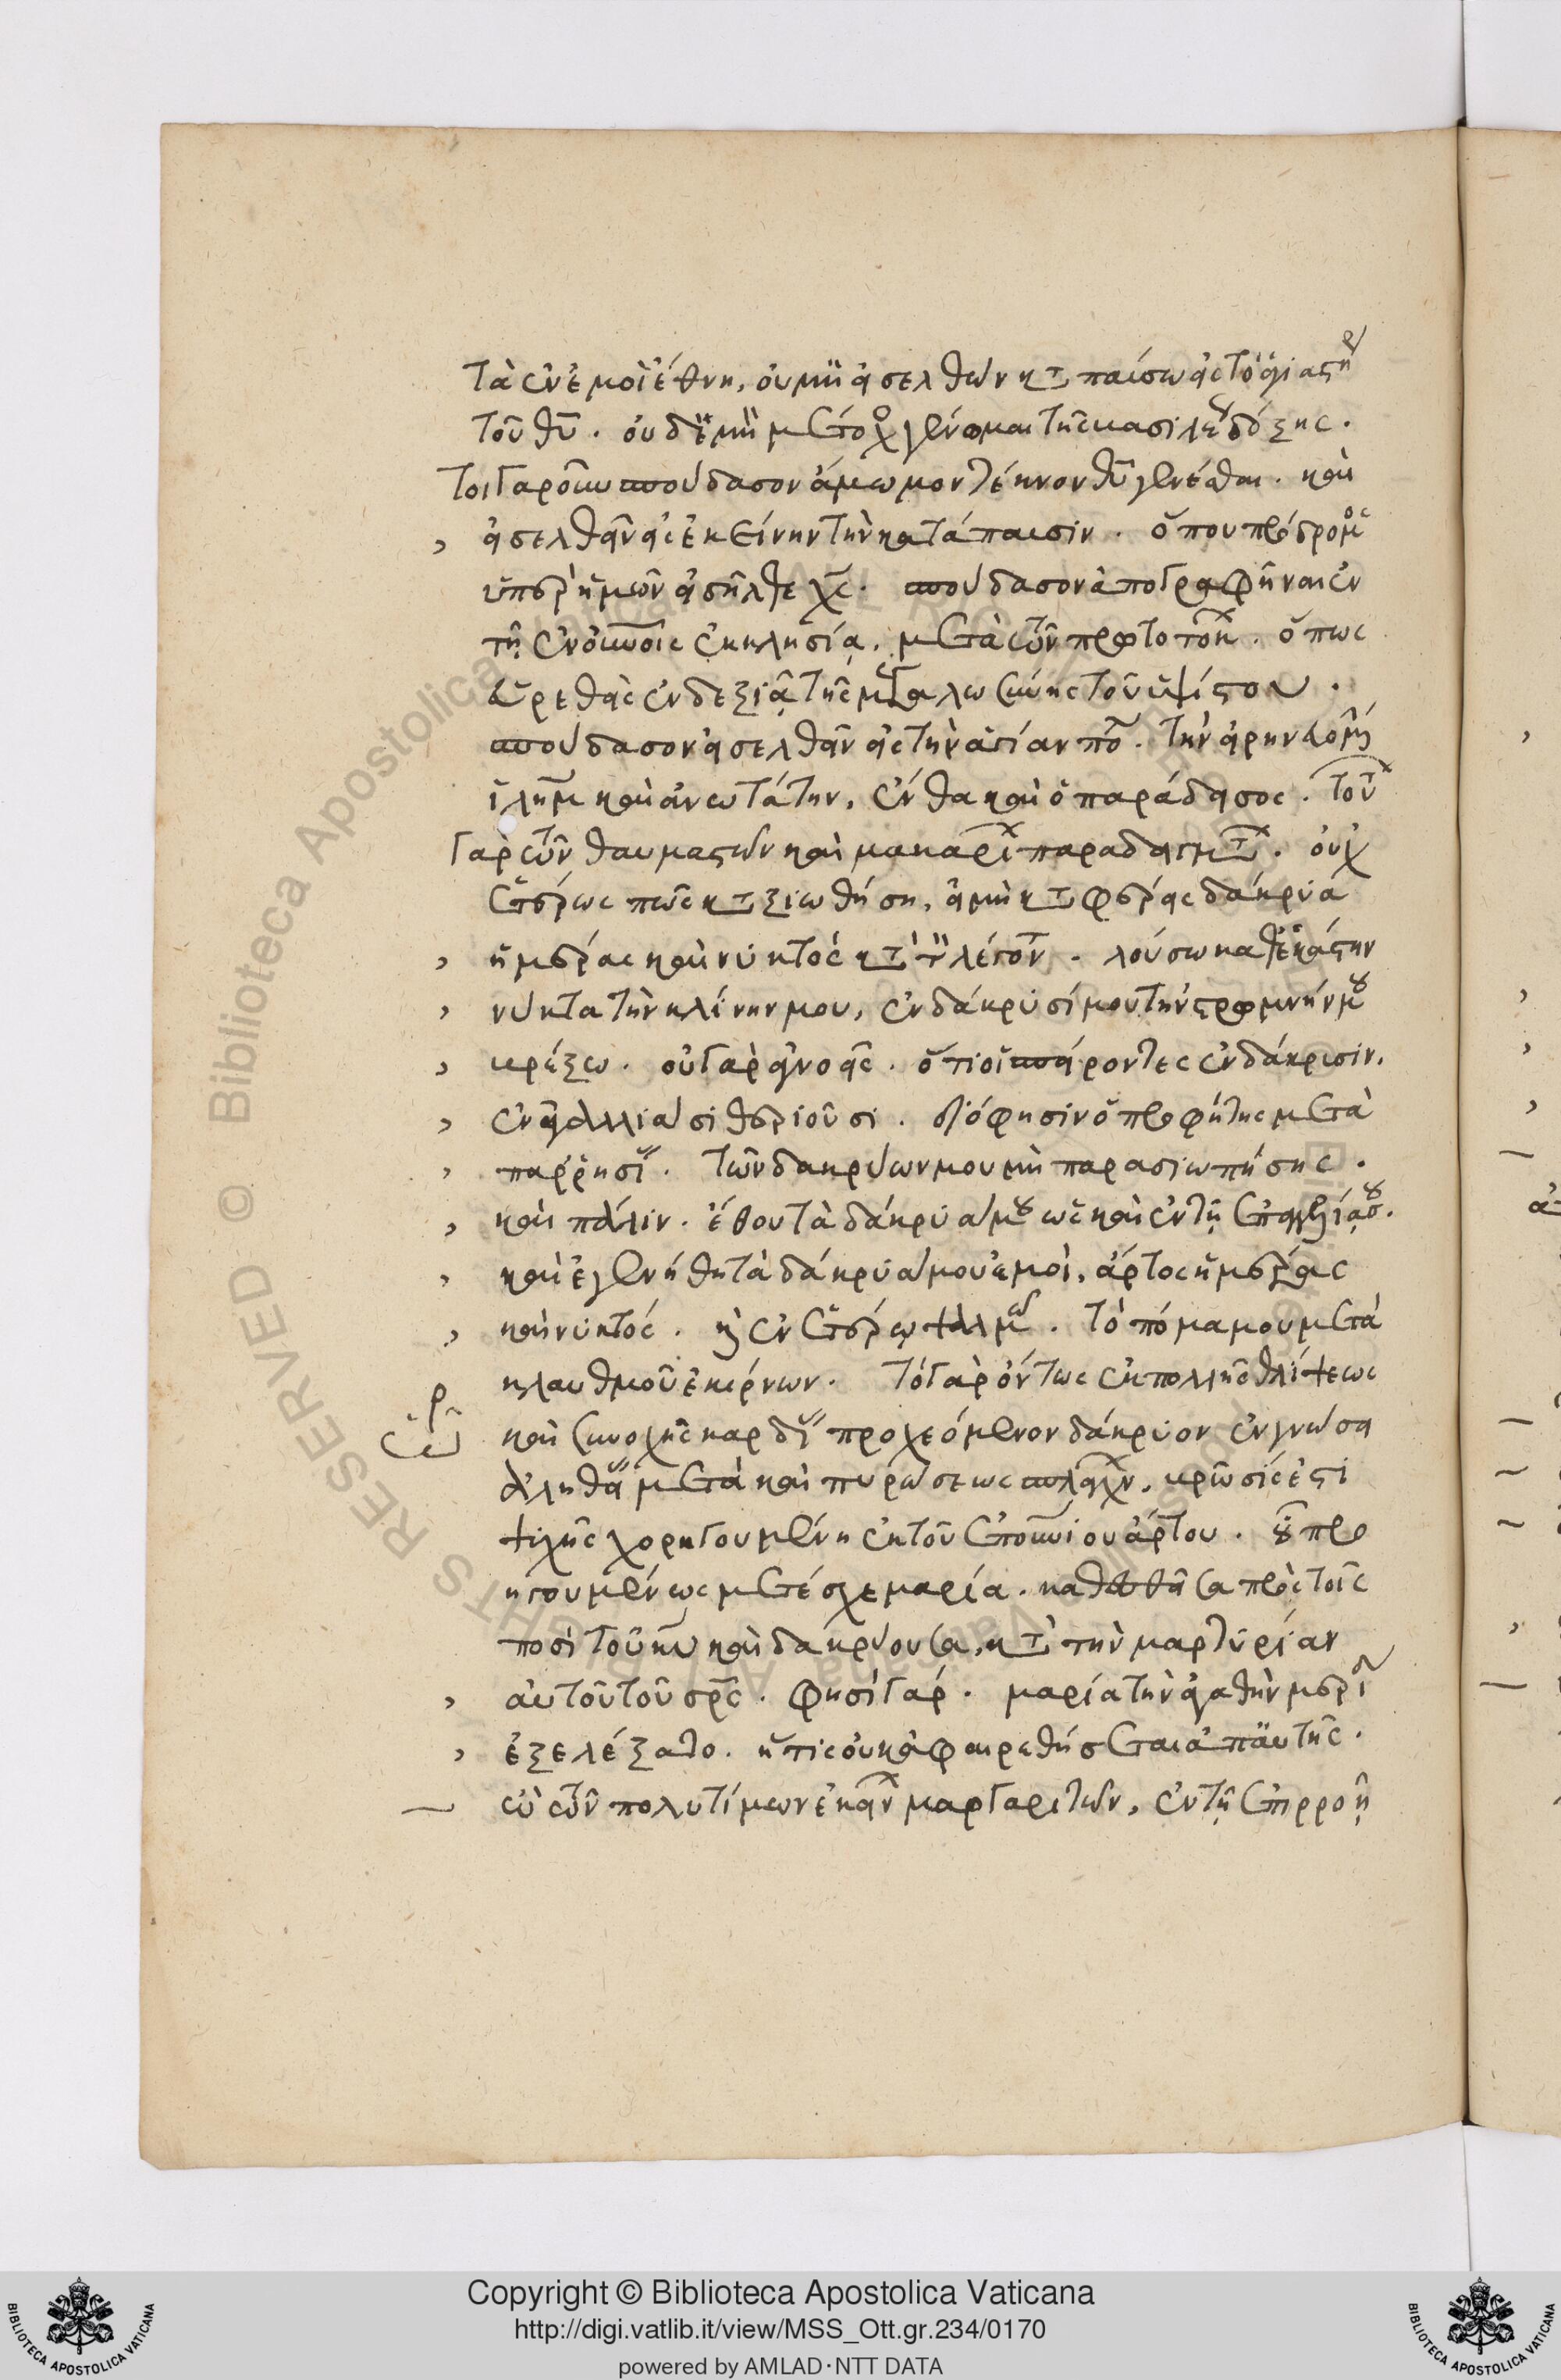 τὰ ἐν ἐμοὶ ἔθνη, οὐ μὴ εἰσελθὼν κατ παύσω εἰς τὸ ἁγιαστή
τοῦ θῦ. οὐδὲ μὴ μέτοχο γένωμαι τῆς βασιλεί δόξης.
τοιγαροῦν σπούδασον ἄμωμον τέκνον θῦ γενέσθαι. καὶ
, εἰσελθεῖν εἰς ἐκείνην τὴν κατάπαυσιν. ὅπου πρόδρομο
ὑπὲρ ἡμῶν εἰσῆλθε χς. σπούδασον ἀπογραφῆναι ἐν
τῇ ἐν οὐνοις ἐκκλησίᾳ. μετὰ τῶν πρωτοτόκ. ὅπως
εὑρεθεὶς ἐν δεξιᾷ τῆς μεγαλωσύνης τοῦ ὑψίστου.
σπούδασον εἰσελθεῖν εἰς τὴν ἁγίαν πο. τὴν εἰρηνευομέ
ἱλημ καὶ ἀνωτάτην, ἔνθα καὶ ὁ παράδεισος. τού
γὰρ τῶν θαυμαστῶν καὶ μακαρί παραδειγμάτ. οὐχ
ἑτέρως πῶς καταξιωθήση, εἰ μὴ κατ φέρεις δάκρυα
, ἡμέρας καὶ νυκτὸς κατὰ τὸ λέγον. λούσω καθἑκάστην
, νύκτα τὴν κλίνην μου, ἐν δάκρυσί μου τὴν στρωμνήν μου
, βρέξω. οὐ γὰρ ἀγνοεῖς. ὅτι οἱ σπείροντες ἐν δάκρυσιν.
, ἐν ἀγαλλιάσει θεριοῦσι. διό φησιν ὁ προφήτης μετὰ
, παρρησί. τῶν δακρύων μου μὴ παρασιωπήσης.
, καὶ πάλιν. ἔθου τὰ δάκρυά μου ὡς καὶ ἐν τῇ ἐπαγγελίᾳ σου.
, καὶ ἐγενήθη τὰ δάκρυά μου ἐμοὶ, ἄρτος ἡμέρας
, καὶ νυκτός. καὶ ἐν ἑτέρῳ ψαλμῶ. τὸ πόμα μου μετὰ
κλαυθμοῦ ἐκίρνων. τὸ γὰρ ὄντως ἐκ πολλῆς θλίψεως
καὶ συνοχῆς καρδί προχεόμενον δάκρυον ἐν γνώσει
ἀληθεί μετὰ καὶ πυρώσεως σπλάγχν, βρῶσίς ἐστι
ψυχῆς χορηγουμένη ἐκ τοῦ ἐπουνίου ἄρτου. οὗ προ
ηγουμένως μετέσχε μαρία. καθεσθεῖσα πρὸς τοῖς
ποσὶ τοῦ κυ καὶ δακρύουσα, κατὰ τὴν μαρτυρίαν
, αὐτοῦ τοῦ σρς. φησὶ γάρ. μαρία τὴν ἀγαθὴν μερί
, ἐξελέξατο. ἥτις οὐκ ἀφαιρεθήσεται ἀπ αὐτῆς.
— ὢ τῶν πολυτίμων ἐκείν μαργαριτῶν, ἐν τῇ ἐπιρροῇ